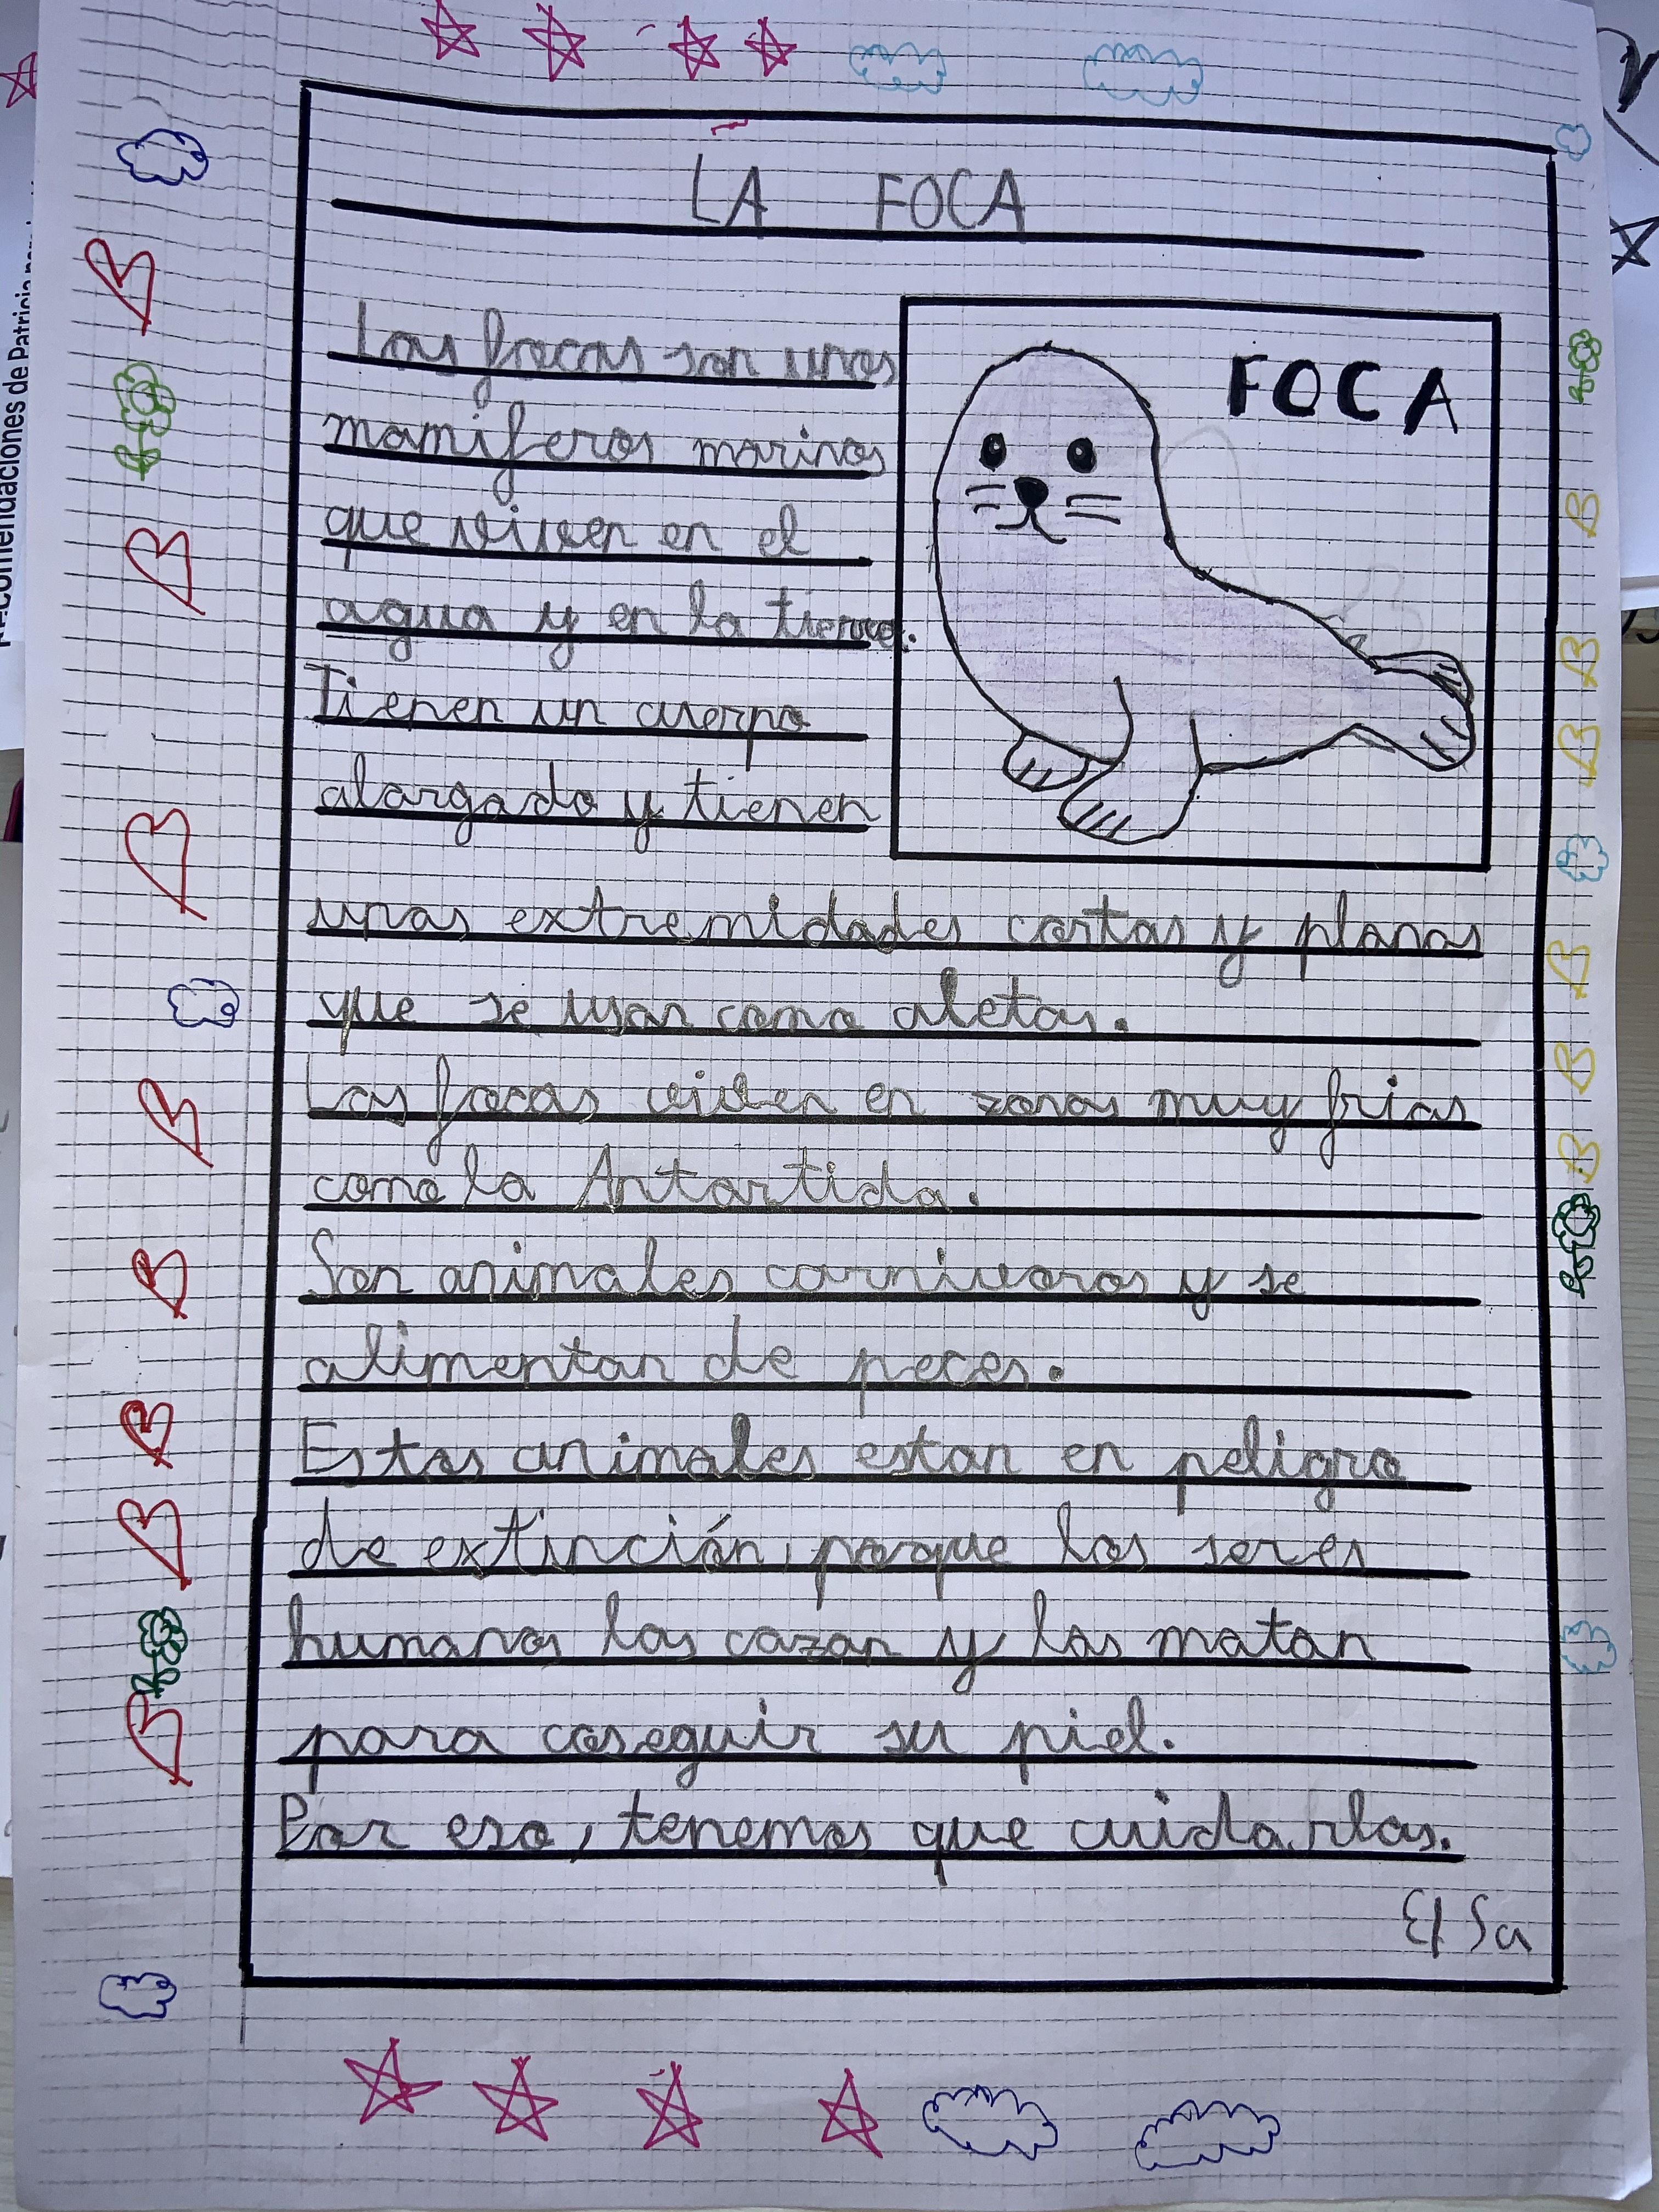 LA FOCA
Las focas son unos
FOCA
mamiferos marinos
que viven en el
agua y en la tierra.
Tienen un cuerpo
alargado y tienen
unas extremidades cortas y planas
que se usan como aletas.
Las focas viven en zonas muy frias
como la Antartida.
Son animales carnivoros y se
alimentan de peces.
Estos animales estan en peligro
de extinción, porque los seres
humanos las cazan y las matan
para coseguir su piel.
Por eso, tenemos que cuidarlas.
Elsa
comendaciones de Patricia